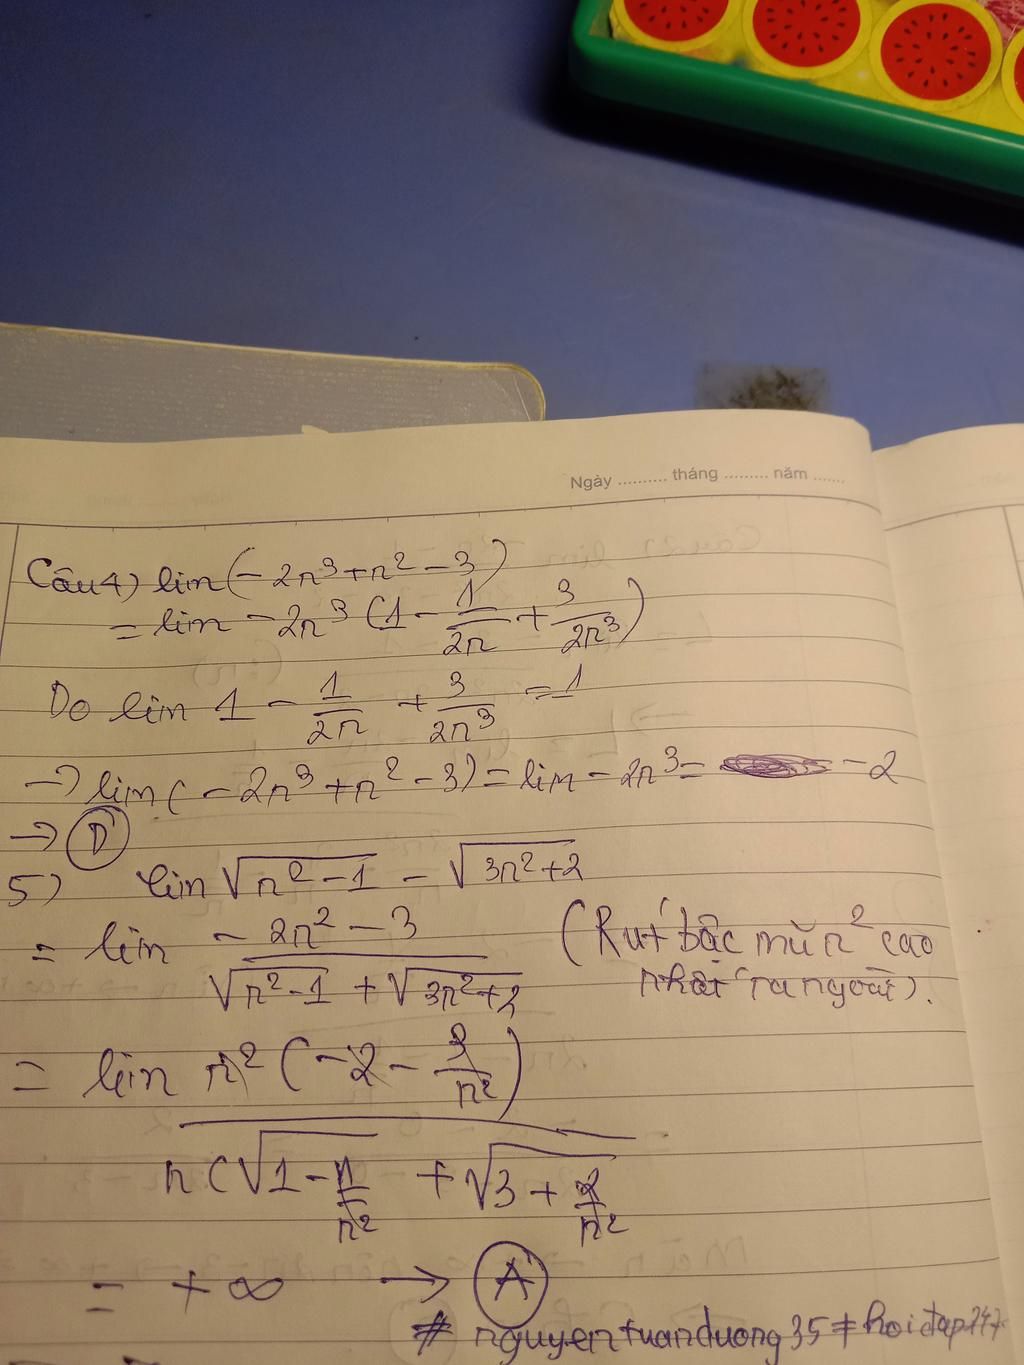 Ngày .......... tháng ......... năm .......
Câu 4) lim (-2n³+n²-3)
= lim -2n³ (1 - 1/2n + 3/2n³)
Do lim 1 - 1/2n + 3/2n³ = 1
→ lim (-2n³+n²-3) = lim -2n³ = -2
→ D
5) lim √(n²-1) - √(3n²+2)
= lim (-2n²-3)/(√(n²-1) + √(3n²+2)) (Rút bậc mũ n² cao
nhất ra ngoài).
= lim n²(-2 - 3/n²)
n(√(1 - 1/n²) + √(3 + 2/n²)
= +∞ → A
# nguyentuanduong35 # hoidap247